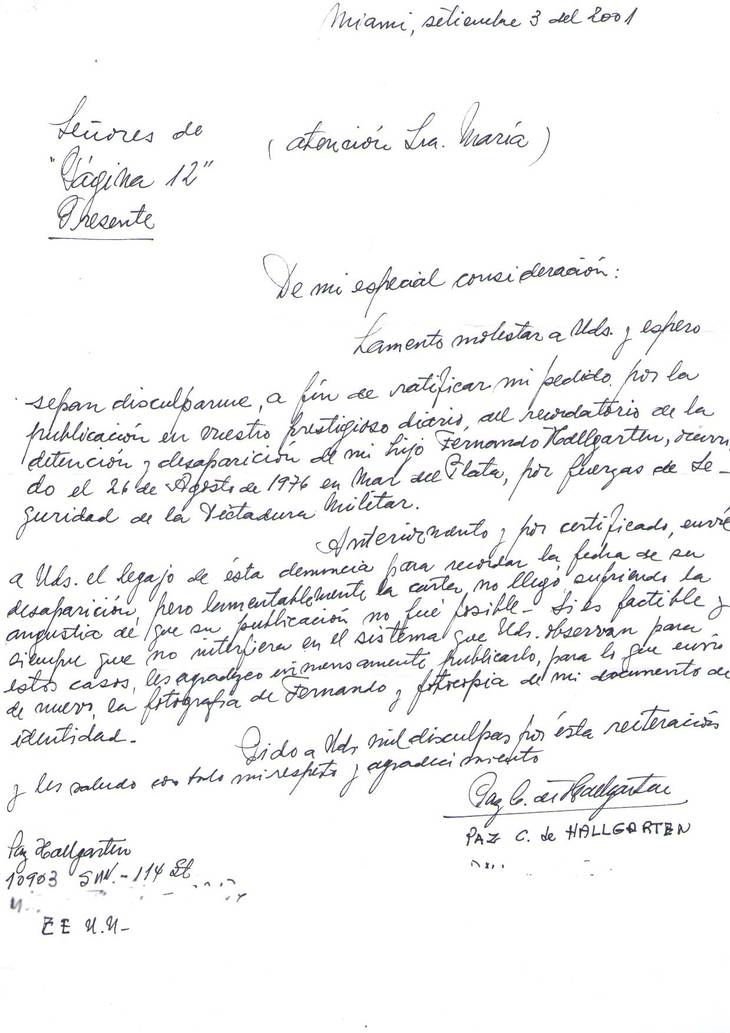 Miami, setiembre 3 del 2001
Señores de
"Página 12"
Presente
(atención Sra. María)
De mi especial consideración:
Lamento molestar a Uds. y espero
sepan disculparme, a fin de ratificar mi pedido por la
publicación en vuestro prestigioso diario, del recordatorio de la
detención y desaparición de mi hijo Fernando Hallgarten, ocurri
do el 26 de Agosto de 1976 en Mar del Plata, por fuerzas de Se-
guridad de la Dictadura Militar.
Anteriormente y por certificado, envié
a Uds. el legajo de ésta denuncia para recordar la fecha de su
desaparición, pero lamentablemente la carta no llegó sufriendo la
angustia de que su publicación no fué posible- Si es factible y
siempre que no interfiera en el sistema que Uds. observan para
estos casos, les agradezco inmensamente publicarlo, para lo que envío
de nuevo, la fotografía de Fernando y fotocopia de mi documento de
identidad.-
Pido a Uds. mil disculpas por ésta reiteración
y les saludo con todo mi respeto y agradecimiento
Paz C. de Hallgarten
PAZ C. de HALLGARTEN
Paz Hallgarten
10903 SW.-114 St
EE U.U-